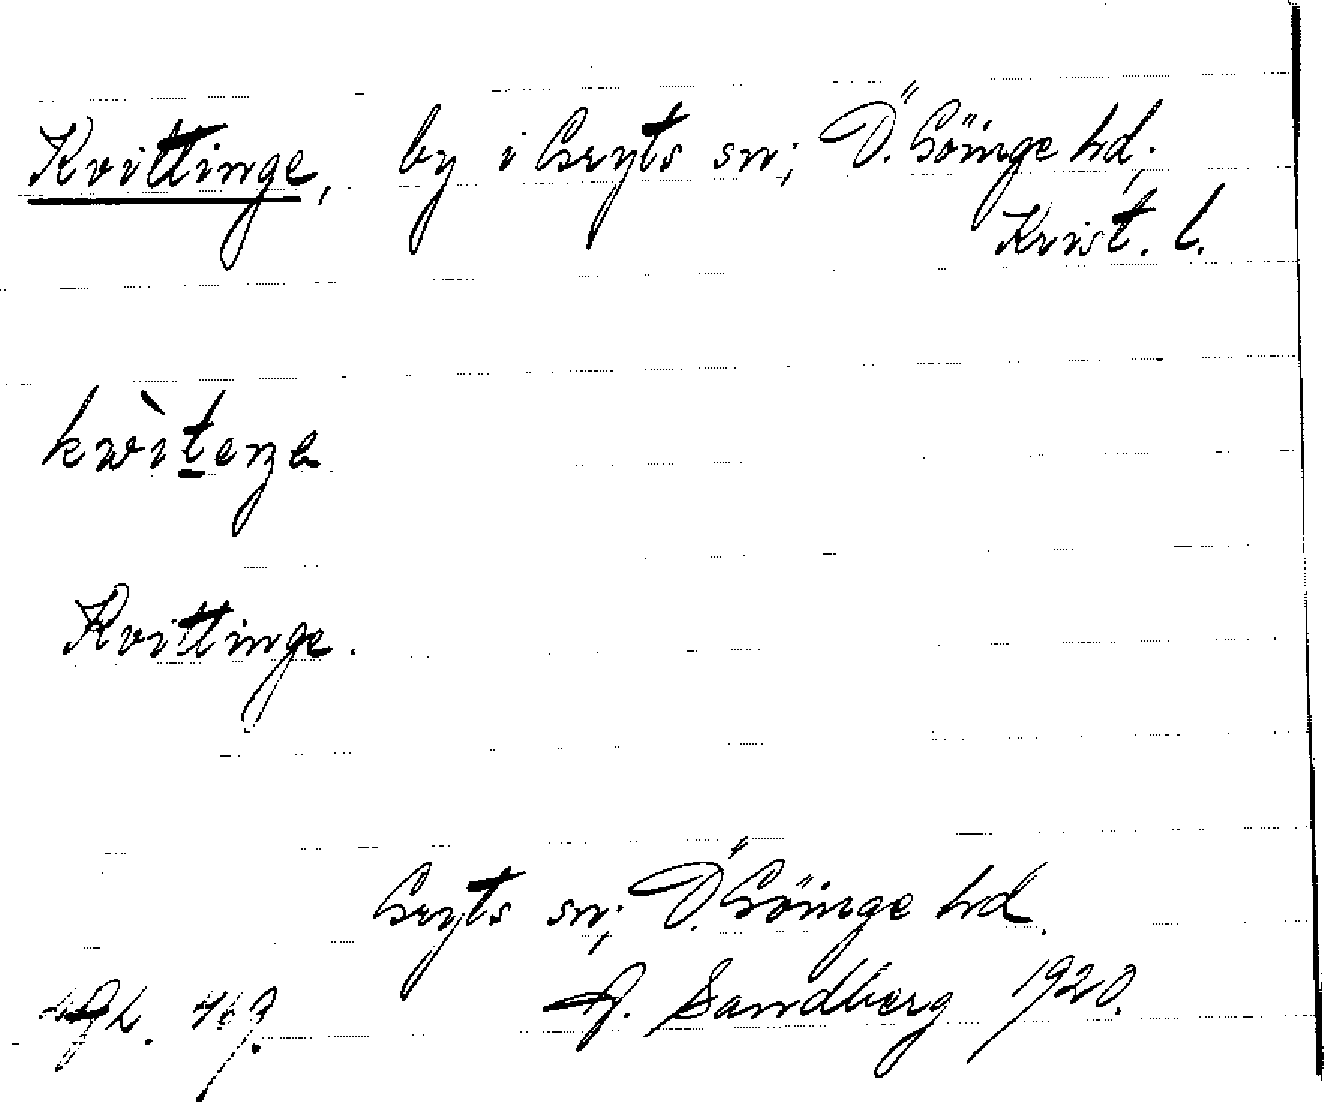 Kvittinge, by i Gryts sn, Ö. Göinge hd,
Krist. l.
kwìt̲eŋe
Kvittinge.
Gryts sn, Ö. Göinge hd.
A. Sandberg 1920.